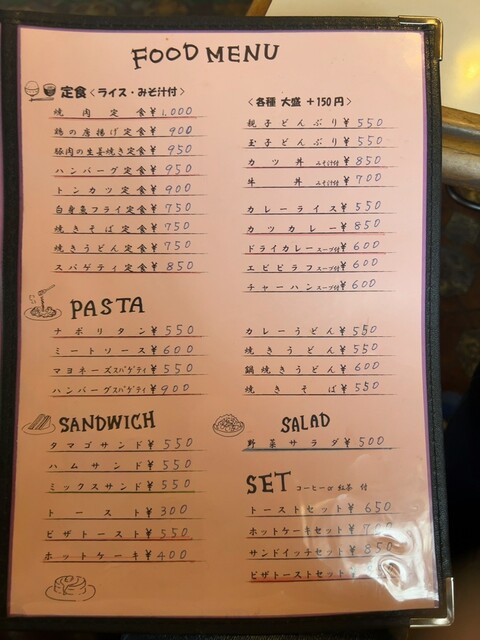 FOOD MENU
定食〈ライス・みそ汁付〉
焼肉定食¥1,000
鶏の唐揚げ定食¥900
豚肉の生姜焼き定食¥950
ハンバーグ定食¥950
トンカツ定食¥900
白身魚フライ定食¥750
焼きそば定食¥750
焼きうどん定食¥750
スパゲティ定食¥850
PASTA
ナポリタン¥550
ミートソース¥600
マヨネーズスパゲティ¥550
ハンバーグスパゲティ¥900
SANDWICH
タマゴサンド¥550
ハムサンド¥550
ミックスサンド¥550
トースト¥300
ピザトースト¥550
ホットケーキ¥400
〈各種 大盛 +150円〉
親子どんぶり¥550
玉子どんぶり¥550
カツ丼みそ汁付¥850
牛丼みそ汁付¥700
カレーライス¥550
カツカレー¥850
ドライカレースープ付¥600
エビピラフスープ付¥600
チャーハンスープ付¥600
カレーうどん¥550
焼きうどん¥550
鍋焼きうどん¥600
焼きそば¥550
SALAD
野菜サラダ¥500
SET コーヒーor紅茶 付
トーストセット¥650
ホットケーキセット¥
サンドイッチセット¥850
ピザトーストセット¥